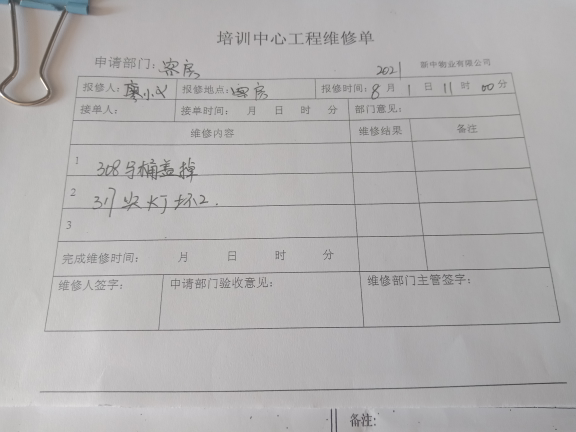 培训中心工程维修单
申请部门：客房 2021 新中物业有限公司
报修人：廖小 报修地点：客房 报修时间：8月1日11时00分
接单人： 接单时间： 月 日 时 分 部门意见：
维修内容 维修结果 备注
1 308马桶盖掉
2 317 灯坏2.
3
完成维修时间： 月 日 时 分
维修人签字： 申请部门验收意见： 维修部门主管签字：
备注：